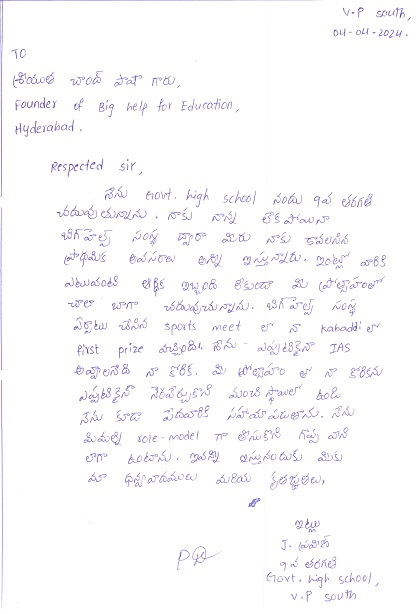 V.P south,
04-04-2024.
TO
శ్రీయుత చాంద్ పాషా గారు,
Founder of Big help for Education,
Hyderabad.
Respected sir,
నేను Govt. high school నందు 9వ తరగతి
చదువుతున్నాను. నాకు నాన్న లేకపోయినా
బిగ్‌హెల్ప్ సంస్థ ద్వారా మీరు నాకు కావలసిన
ప్రాథమిక అవసరాలు అన్నీ ఇస్తున్నారు. ఇంట్లో వారికి
ఎటువంటి ఆర్థిక ఇబ్బంది లేకుండా మీ ప్రోత్సాహంతో
చాలా బాగా చదువుచున్నాను. బిగ్‌హెల్ప్ సంస్థ
ఏర్పాటు చేసిన sports meet లో నా kabaddi లో
First prize వచ్చింది. నేను ఎప్పటికైనా IAS
అవ్వాలనేది నా కోరిక. మీ ప్రోత్సాహం తో నా కోరికను
ఎప్పటికైనా నెరవేర్చుకొని మంచి స్థాయిలో ఉండి
నేను కూడా పేదవారికి సహాయపడుతాను. నేను
మిమ్మల్ని role-model గా తీసుకొని గొప్ప వాని
లాగా ఉంటాను. ఇవన్నీ ఇస్తునందుకు మీకు
మా ధన్యవాదములు మరియు కృతజ్ఞతలు.
ఇట్లు
J. ప్రవీణ్
9వ తరగతి
Govt. high school,
V.P south